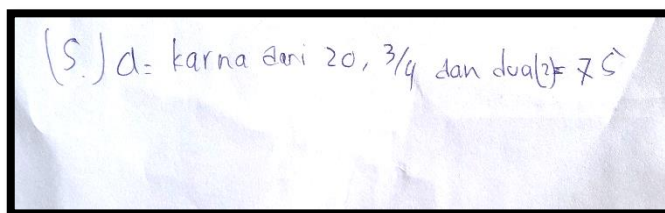 (5.) d = karna dari 20, 3/4 dan dua(2) = 75